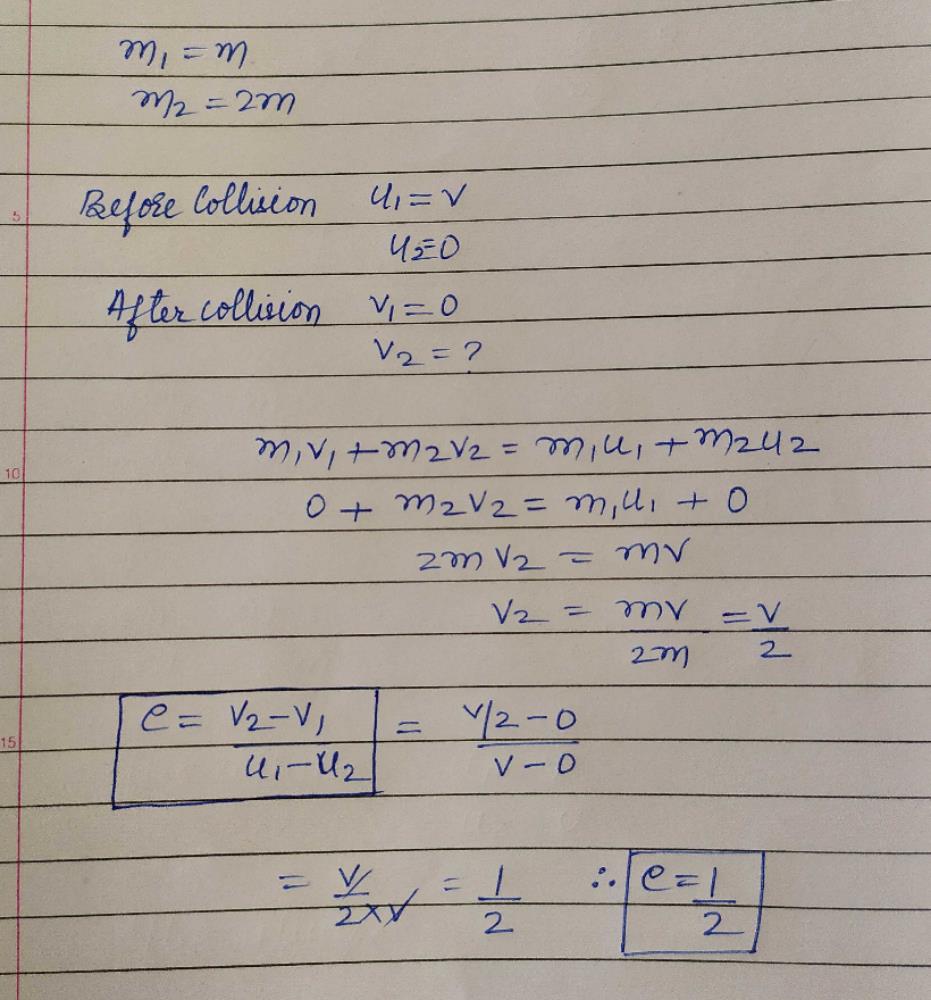 m₁ = m
m₂ = 2m
5
Before Collision u₁ = v
u₂ = 0
After collision v₁ = 0
v₂ = ?
10
m₁v₁ + m₂v₂ = m₁u₁ + m₂u₂
0 + m₂v₂ = m₁u₁ + 0
2m v₂ = mv
v₂ = mv/2m = v/2
15
e = (v₂ - v₁)/(u₁ - u₂) = (v/2 - 0)/(v - 0)
= v/(2×v) = 1/2 ∴ e = 1/2